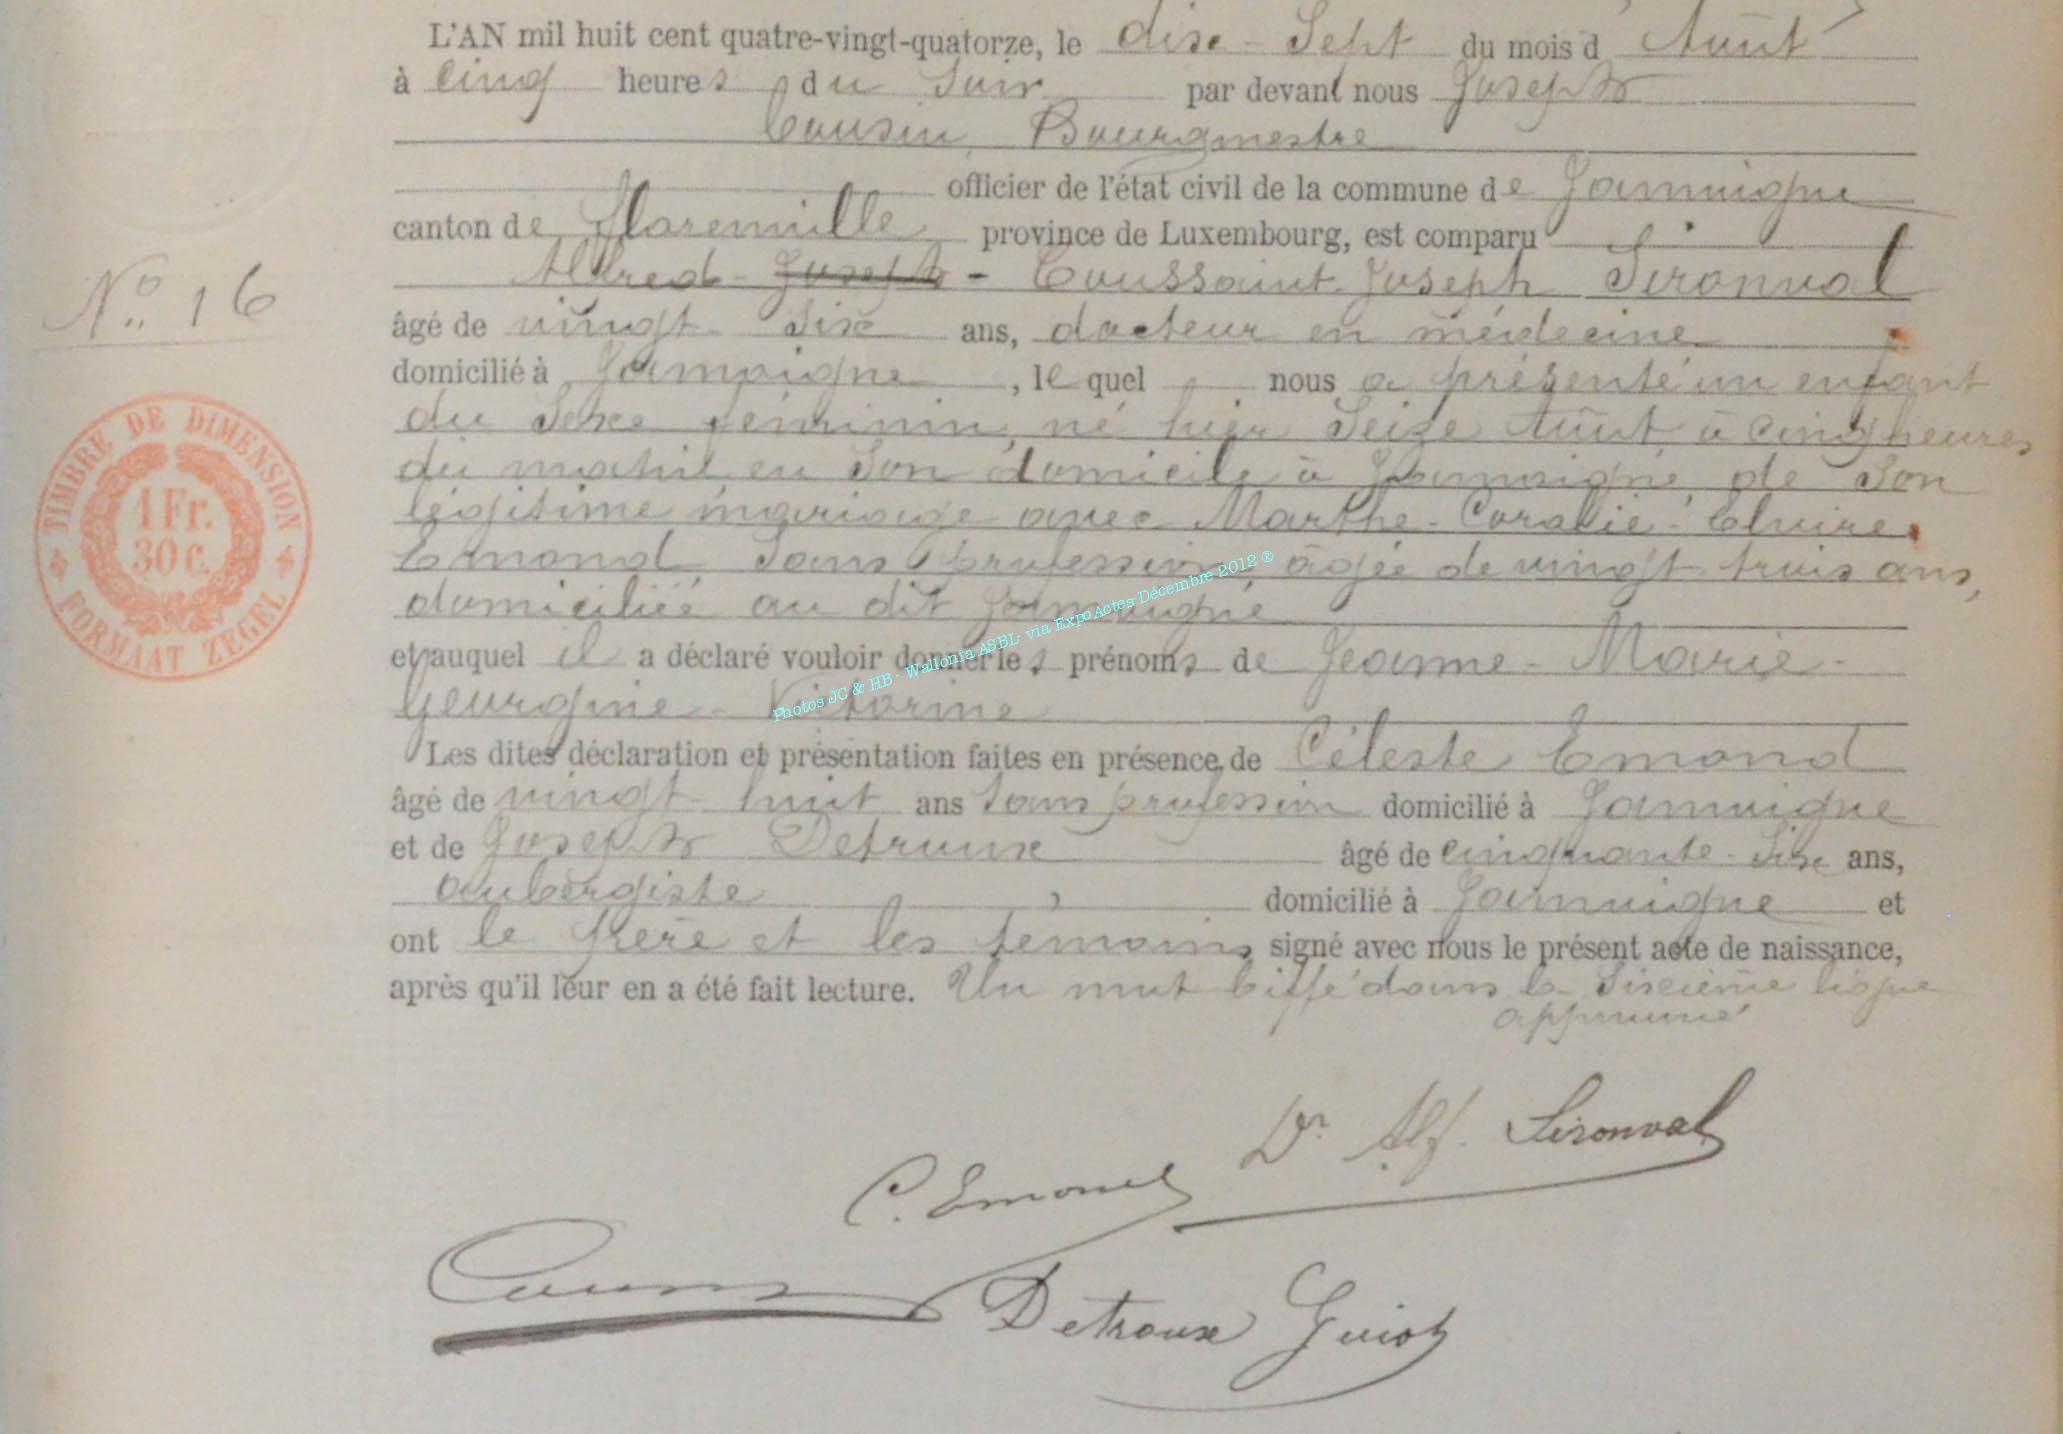 L'AN mil huit cent quatre-vingt-quatorze, le dix-Sept du mois d Août
à cinq heures du Soir par devant nous Joseph
Cousin, Bourgmestre
officier de l'état civil de la commune de Jamoigne
canton de Florenville province de Luxembourg, est comparu
Alfred - Joseph - Toussaint Joseph Sironval
âgé de vingt Six ans, docteur en médecine
Nº 16
domicilié à Jamoigne, lequel nous a présenté un enfant
du Sexe féminin, né hier Seize Août à cinq heures
du matin en Son domicile à Jamoigne, de Son
légitime mariage avec Marthe-Coralie-Elvire
Emond, Sans profession, âgée de vingt trois ans,
domiciliée au dit Jamoigne
et auquel il a déclaré vouloir donner les prénoms de Jeanne-Marie-
Georgine-Victorine
Les dites déclaration et présentation faites en présence de Céleste Emond
âgé de vingt huit ans Sans profession domicilié à Jamoigne
et de Joseph Detroux âgé de cinquante-Six ans,
aubergiste, domicilié à Jamoigne et
ont le père et les témoins signé avec nous le présent acte de naissance,
après qu'il leur en a été fait lecture. Un mot biffé dans la Sixième ligne
approuvé
TIMBRE DE DIMENSION
1 Fr.
30 c.
FORMAAT ZEGEL
Photos JC & HB - Wallonia ASBL- via ExpoActes-Décembre 2012 ®
Dr Alf. Sironval
C. Emond
Cousin
Detroux Guiot